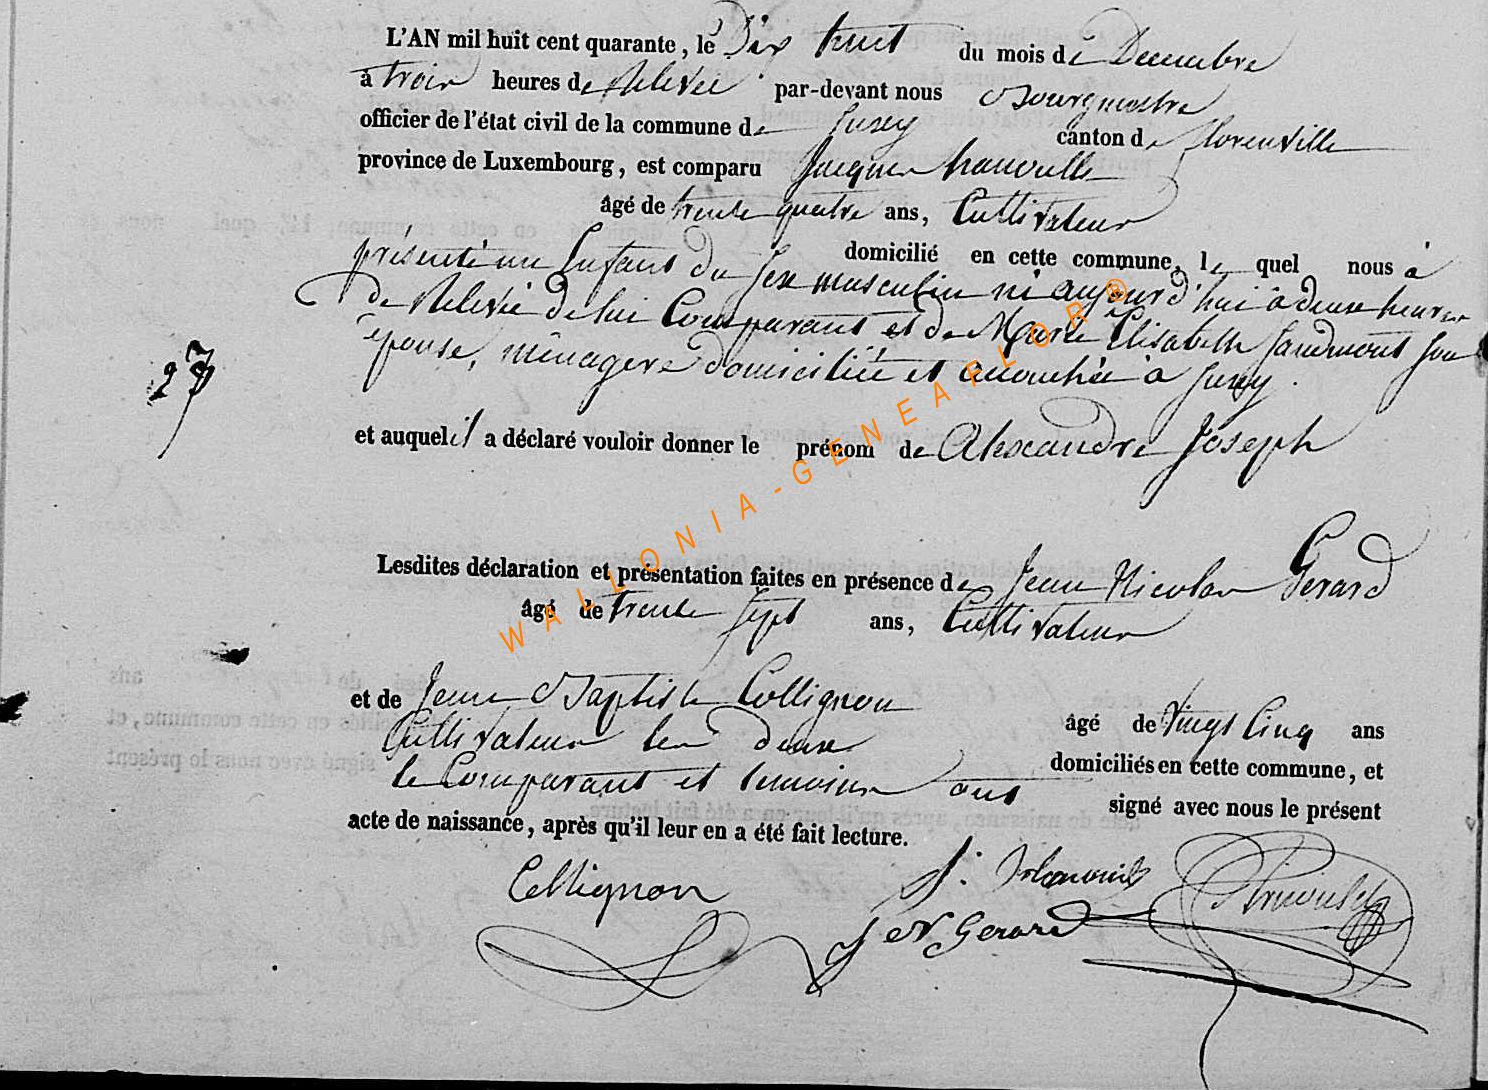 L'AN mil huit cent quarante, le Dix huit du mois de Decembre
à trois heures de Relevée par-devant nous Bourgmestre
officier de l'état civil de la commune de Jusey canton de florenville
province de Luxembourg, est comparu Jacques
âgé de trente quatre ans, Cultivateur
domicilié en cette commune, le quel nous à
présenté un Enfant du Sexe masculin né aujourd'hui à deux heures
de Relevée de lui Comparant et de Marie Elisabeth son
épouse, ménagere domiciliée et accouchée à Jusey.
27
et auquel il a déclaré vouloir donner le prénom de Alexandre Joseph
Lesdites déclaration et présentation faites en présence de Jean Nicolas Gerard
âgé de trente Sept ans, Cultivateur
et de Jean Baptiste Collignon
âgé de Vingt Cinq ans
Cultivateur les deux
domiciliés en cette commune, et
le Comparant et temoins ont signé avec nous le présent
acte de naissance, après qu'il leur en a été fait lecture.
Collignon
J N Gerard
WALLONIA-GENEAFLOR®